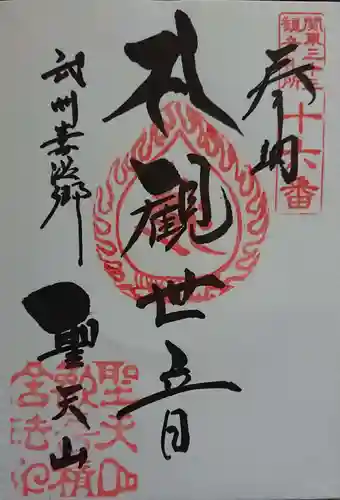 奉納
関東三十三
観音霊場
十六番
札観世音
武州妻沼郷
聖天山
聖天山
歓喜